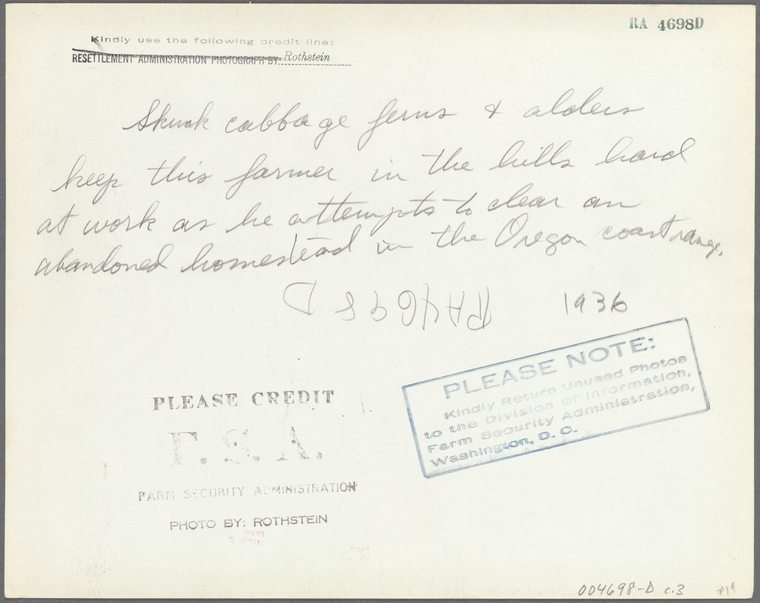 RA 4698D
Kindly use the following credit line:
RESETTLEMENT ADMINISTRATION PHOTOGRAPH BY: Rothstein
Skunk cabbage ferns & alders
keep this farmer in the hills hard
at work as he attempts to clear an
abandoned homestead in the Oregon coast range.
RA4698D
1936
PLEASE NOTE:
Kindly Return Unused Photos
to the Division of Information,
Farm Security Administration,
Washington, D. C.
PLEASE CREDIT
F. S. A.
FARM SECURITY ADMINISTRATION
PHOTO BY: ROTHSTEIN
004698-D c.3